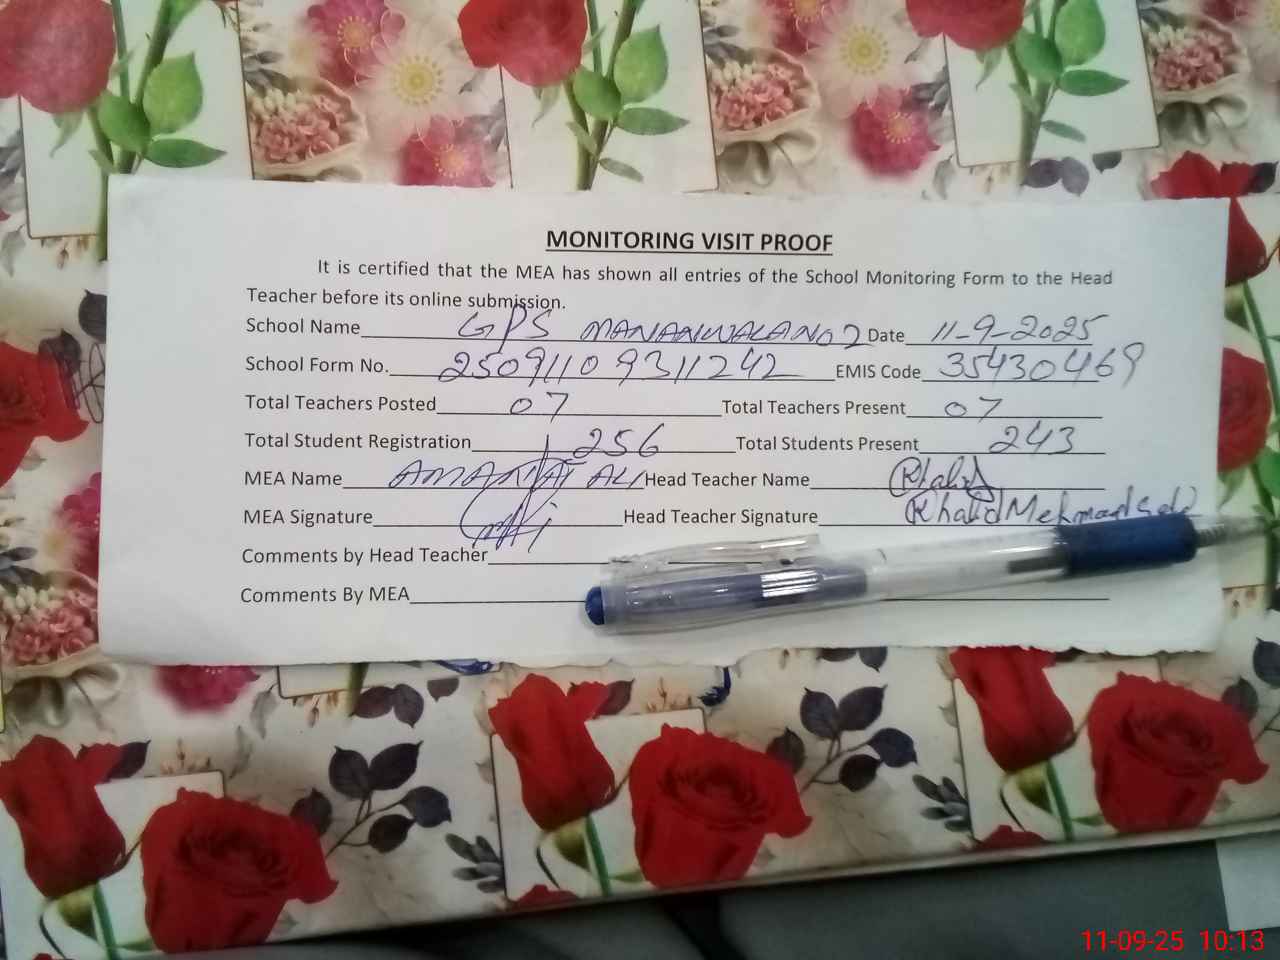 MONITORING VISIT PROOF
It is certified that the MEA has shown all entries of the School Monitoring Form to the Head
Teacher before its online submission.
School Name GPS MANANWALA NO 2 Date 11-9-2025
School Form No. 25091109311242 EMIS Code 35430469
Total Teachers Posted 07 Total Teachers Present 07
Total Student Registration 256 Total Students Present 243
MEA Name AMANAT ALI Head Teacher Name Khalid
MEA Signature Head Teacher Signature Khalid Mehmood
Comments by Head Teacher
Comments By MEA
11-09-25 10:13